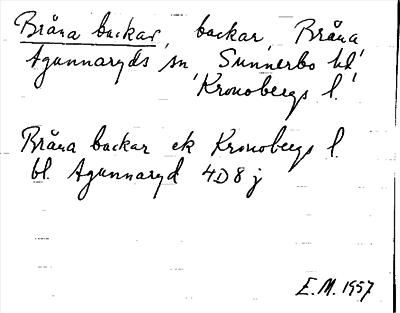 Bråna backar, backar, Bråna
Agunnaryds sn, Sunnerbo hd,
Kronobergs l.
Bråna backar ek Kronobergs l.
bl. Agunnaryd 4D8j
E.M. 1957